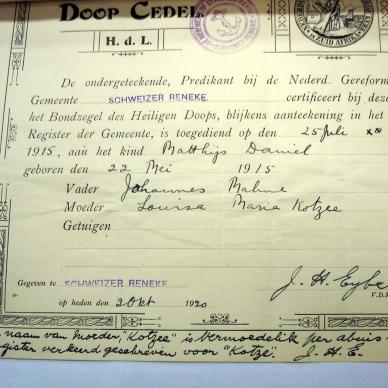 DOOP CEDEL
H. d. L.
ZUID AFRIKA
De ondergeteekende, Predikant bij de Nederd. Gereform
Gemeente SCHWEIZER RENEKE. certificeert bij deze
het Bondzegel des Heiligen Doops, blijkens aanteekening in het
Register der Gemeente, is toegediend op den 25 Juli
1915, aan het kind Matthijs Daniel
geboren den 22 Mei 1915
Vader Johannes
Moeder Louisa Maria Kotzee
Getuigen
Gegeven te SCHWEIZER RENEKE
J. H. Eybe
V.D.M
op heden 2 Okt 1920
naam van Moeder, "Kotzee" is vermoedelik per abuis
gister verkeerd geschreven voor "Kotze". J. H. E.